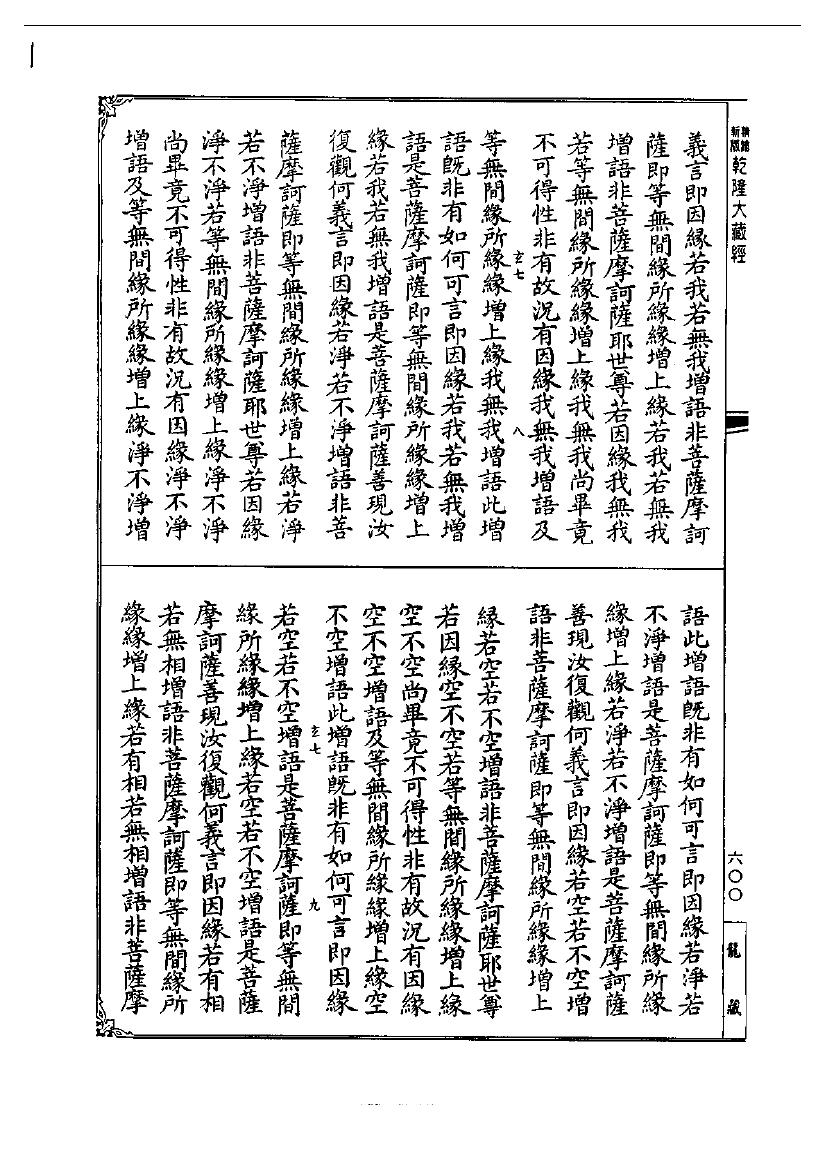 乾隆大藏經
義言即因緣若我若無我增語非菩薩摩訶
薩即等無間緣所緣緣增上緣若我若無我
增語非菩薩摩訶薩耶世尊若因緣我無我
若等無間緣所緣緣增上緣我無我尚畢竟
不可得性非有故況有因緣我無我增語及
玄七
八
等無間緣所緣緣增上緣我無我增語此增
語旣非有如何可言即因緣若我若無我增
語是菩薩摩訶薩即等無間緣所緣緣增上
緣若我若無我增語是菩薩摩訶薩善現汝
復觀何義言即因緣若淨若不淨增語非菩
薩摩訶薩即等無間緣所緣緣增上緣若淨
若不淨增語非菩薩摩訶薩耶世尊若因緣
淨不淨若等無間緣所緣緣增上緣淨不淨
尚畢竟不可得性非有故況有因緣淨不淨
增語及等無間緣所緣緣增上緣淨不淨增
語此增語旣非有如何可言即因緣若淨若
不淨增語是菩薩摩訶薩即等無間緣所緣
緣增上緣若淨若不淨增語是菩薩摩訶薩
善現汝復觀何義言即因緣若空若不空增
語非菩薩摩訶薩即等無間緣所緣緣增上
緣若空若不空增語非菩薩摩訶薩耶世尊
若因緣空不空若等無間緣所緣緣增上緣
空不空尚畢竟不可得性非有故況有因緣
空不空增語及等無間緣所緣緣增上緣空
不空增語此增語旣非有如何可言即因緣
玄七
九
若空若不空增語是菩薩摩訶薩即等無間
緣所緣緣增上緣若空若不空增語是菩薩
摩訶薩善現汝復觀何義言即因緣若有相
若無相增語非菩薩摩訶薩即等無間緣所
緣緣增上緣若有相若無相增語非菩薩摩
六〇〇
龍藏